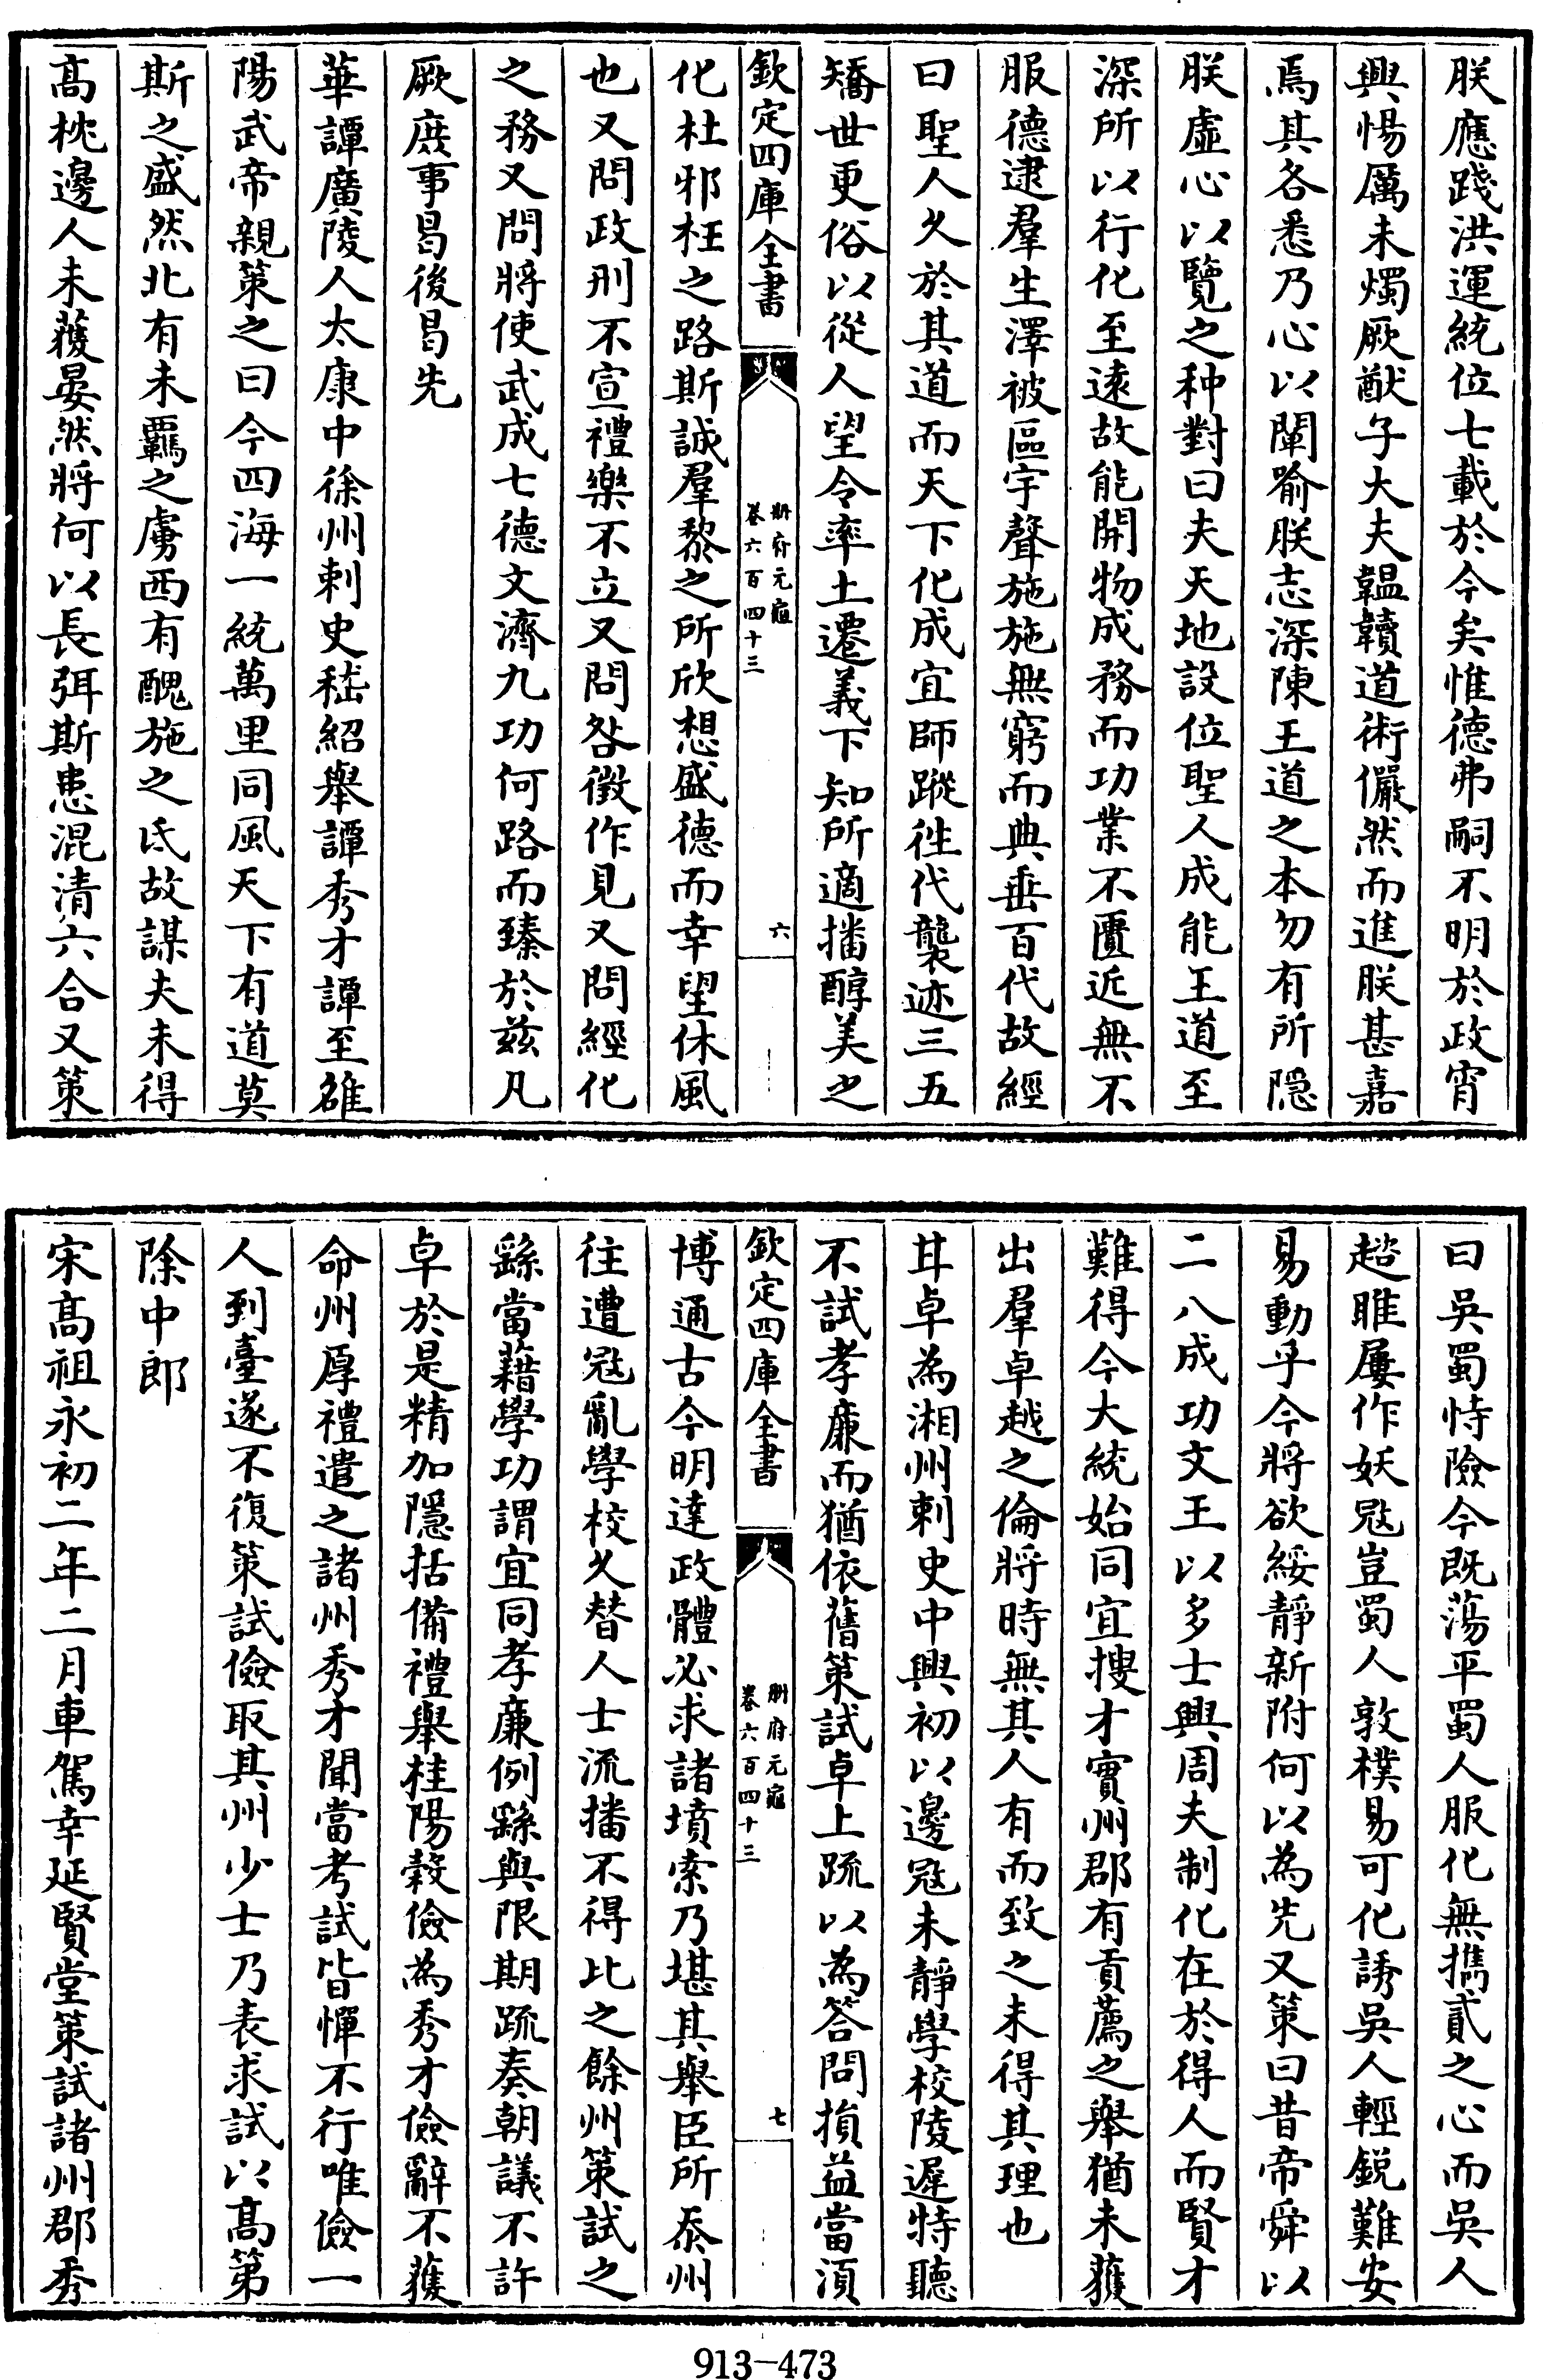 朕應踐洪運統位七載於今矣惟德弗嗣不明於政宵
興惕厲未燭厥猷子大夫韞韥道術儼然而進朕甚嘉
焉其各悉乃心以闡喻朕志深陳王道之本勿有所隠
朕虛心以覽之种對曰夫天地設位聖人成能王道至
深所以行化至逺故能開物成務而功業不匱近無不
服德逮羣生澤被區宇聲施施無窮而典垂百代故經
曰聖人久於其道而天下化成宜師蹤徃代襲迹三五
矯世更俗以從人望令率土遷義下知所適播醇美之
欽定四庫全書
冊府元龜
卷六百四十三
六
化杜邪枉之路斯誠羣黎之所欣想盛德而幸望休風
也又問政刑不宣禮樂不立又問咎徵作見又問經化
之務又問將使武成七德文濟九功何路而臻於兹凡
厥庶事曷後曷先
華譚廣陵人太康中徐州刺史嵇紹舉譚秀才譚至雒
陽武帝親策之曰今四海一統萬里同風天下有道莫
斯之盛然北有未羈之虜西有醜施之氐故謀夫未得
髙枕邊人未獲晏然將何以長弭斯患混清六合又策
曰吳蜀恃險今既蕩平蜀人服化無攜貳之心而吳人
趦雎屢作妖宼豈蜀人敦樸易可化誘吳人輕鋭難安
易動乎今將欲綏靜新附何以為先又策曰昔帝舜以
二八成功文王以多士興周夫制化在於得人而賢才
難得今大統始同宜搜才實州郡有貢薦之舉猶未獲
出羣卓越之倫將時無其人有而致之未得其理也
甘卓為湘州刺史中興初以邊宼未靜學校陵遲特聽
不試孝廉而猶依舊策試卓上疏以為答問損益當須
欽定四庫全書
冊府元龜
卷六百四十三
七
博通古今明達政體必求諸墳索乃堪其舉臣所忝州
往遭冦亂學校久替人士流播不得比之餘州策試之
繇當藉學功謂宜同孝廉例繇與限期疏奏朝議不許
卓於是精加隱括備禮舉桂陽穀儉為秀才儉辭不獲
命州厚禮遣之諸州秀才聞當考試皆憚不行唯儉一
人到臺遂不復策試儉耻其州少士乃表求試以髙第
除中郎
宋髙祖永初二年二月車駕幸延賢堂策試諸州郡秀
913-473